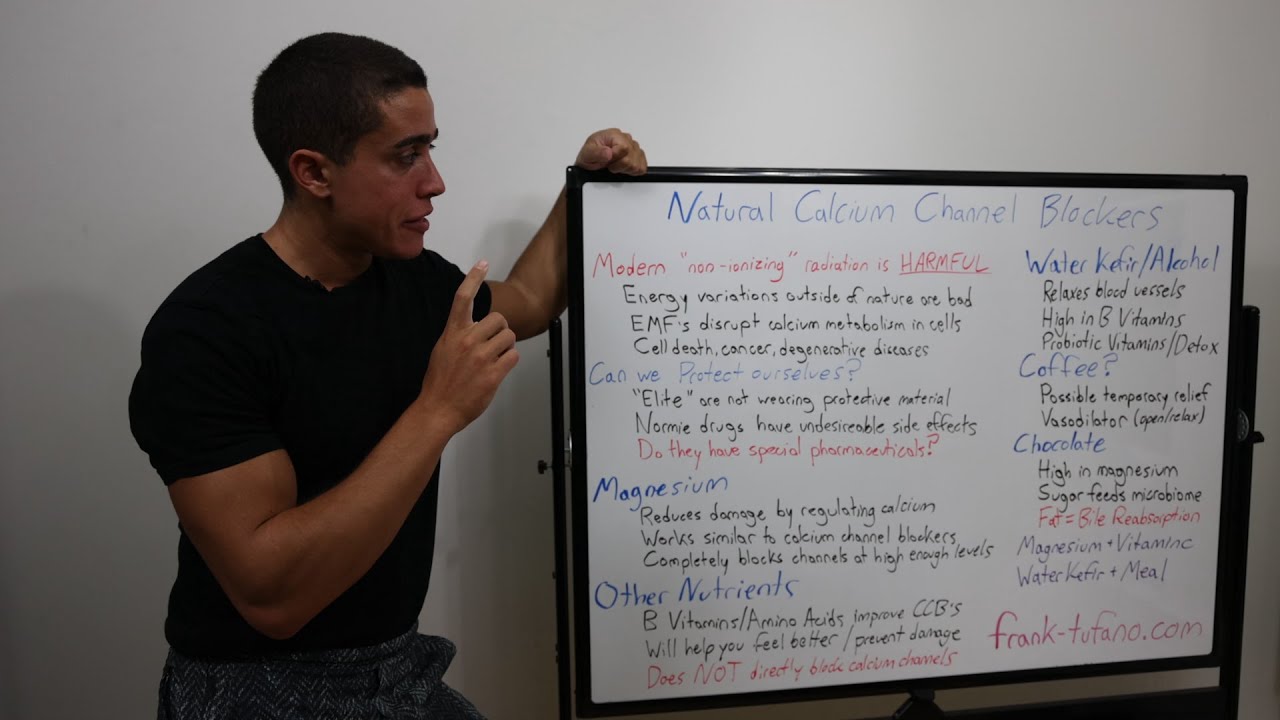 Natural Calcium Channel Blockers
Modern "non-ionizing" radiation is HARMFUL
Energy variations outside of nature are bad
EMF's disrupt calcium metabolism in cells
Cell death, cancer, degenerative diseases
Can we Protect ourselves?
"Elite" are not wearing protective material
Normie drugs have undesireable side effects
Do they have special pharmaceuticals?
Magnesium
Reduces damage by regulating calcium
Works similar to calcium channel blockers
Completely blocks channels at high enough levels
Other Nutrients
B Vitamins/Amino Acids improve CCB's
Will help you feel better / prevent damage
Does NOT directly block calcium channels
Water Kefir/Alcohol
Relaxes blood vessels
High in B Vitamins
Probiotic Vitamins/Detox
Coffee?
Possible temporary relief
Vasodilator (open/relax)
Chocolate
High in magnesium
Sugar feeds microbiome
Fat = Bile Reabsorption
Magnesium + Vitamin C
Water Kefir + Meal
frank-tufano.com